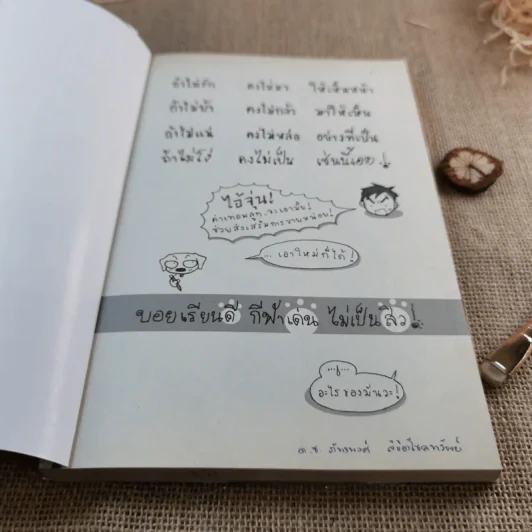 ถ้าไม่รัก คงไม่มา ให้เห็นหน้า
ถ้าไม่บ้า คงไม่กล้า มาให้เห็น
ถ้าไม่แน่ คงไม่หล่อ อย่างที่เป็น
ถ้าไม่โง่ คงไม่เป็น เช่นนี้เอย !
ไอ้จุ่น!
ช่วยส่งเสริมการขายหน่อย!
... เอาใหม่ก็ได้ !
บอยเรียนดี กีฬาเด่น ไม่เป็นสิว !
อะไรของมันวะ!
ด.ช. ภัทรพงศ์